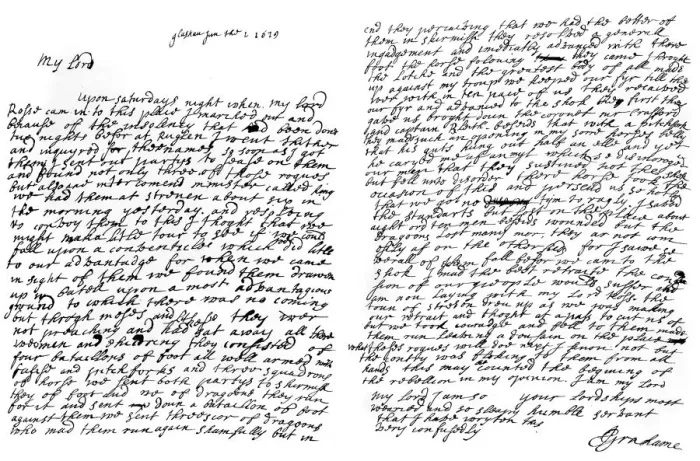 glaskou jun the 1 1679
My Lord
upon saturdays night when my lord
Rosse cam in to this place I marched out and
becaus of the insolency that had been done
tue nights before at Ruglen I went thither
and inquyred for the names so soon as I got
them I sent out partys to sease on them
and found not only three of those rogues
but also ane intercomend minister called King
we had them at streven about six in
the morning yesterday and resolving
to convey them to this I thoght that we
might mak a litle tour to see if we could
fall upon a conventicle which we did litle
to our advantadge for when we cam
in sight of them we found them drawen
up in batell upon a most advantagious
ground to which there was no coming
but throgh moses and lakes they wer
not preaching and had gat away all there
weomen and shildring they consisted of
four bataillons of foot all well armed with
fusils and pitch forks and three squadrons
of horse we sent both partys to skirmish
they of foot and we of dragoons they run
for it and sent down a bataillon of foot
against them we sent threescor of dragoons
who mad them run again shamfully but in
end they percaiving that we had the better of
them in skirmish they resolved a generall
ingadgment and imediatly advanced with there
foot the horse folowing they cam throght
the lotche and the greatest body of all made
up against my troupe we keeped our fyr till they
wer within ten pace of us they recaived
our fyr and advanced to the shok the first they
gave us broght doun the coronet mr Crafford
and captain Bleith besids that with a pitchfork
they mad such an opening in my sone horses belly
that his guts hung out half an elle and yet
he caryed me af an myl which so discoroged
our men that they sustined not the shok
but fell into disorder there horse took the
occasion of this and persued us so hotly
that we got no tym to rayly I saved
the standarts but lost on the place about
aight ord ten men besids wounded but the
dragoons lost many mor they ar not com
esily af on the other side for I sawe
severall of them fall befor we cam to the
shok I mad the best retraite the confu
sion of our people would suffer and
I am now laying with my Lord Rosse the
toun of streven drew up as we was making
our retrait and thoght of a pass to cut us of
but we took courage and fell to them made
them run leaving a dousain on the place
what these rogues will dou yet I know not but
the contry was floking to them from all
hands this may be counted the begining of
the rebellion in my opinion I am my lord
my lord I am so your lordships most
wearied and so sleapy humble servant
that I have wryton this
very confusedly
JGrahame